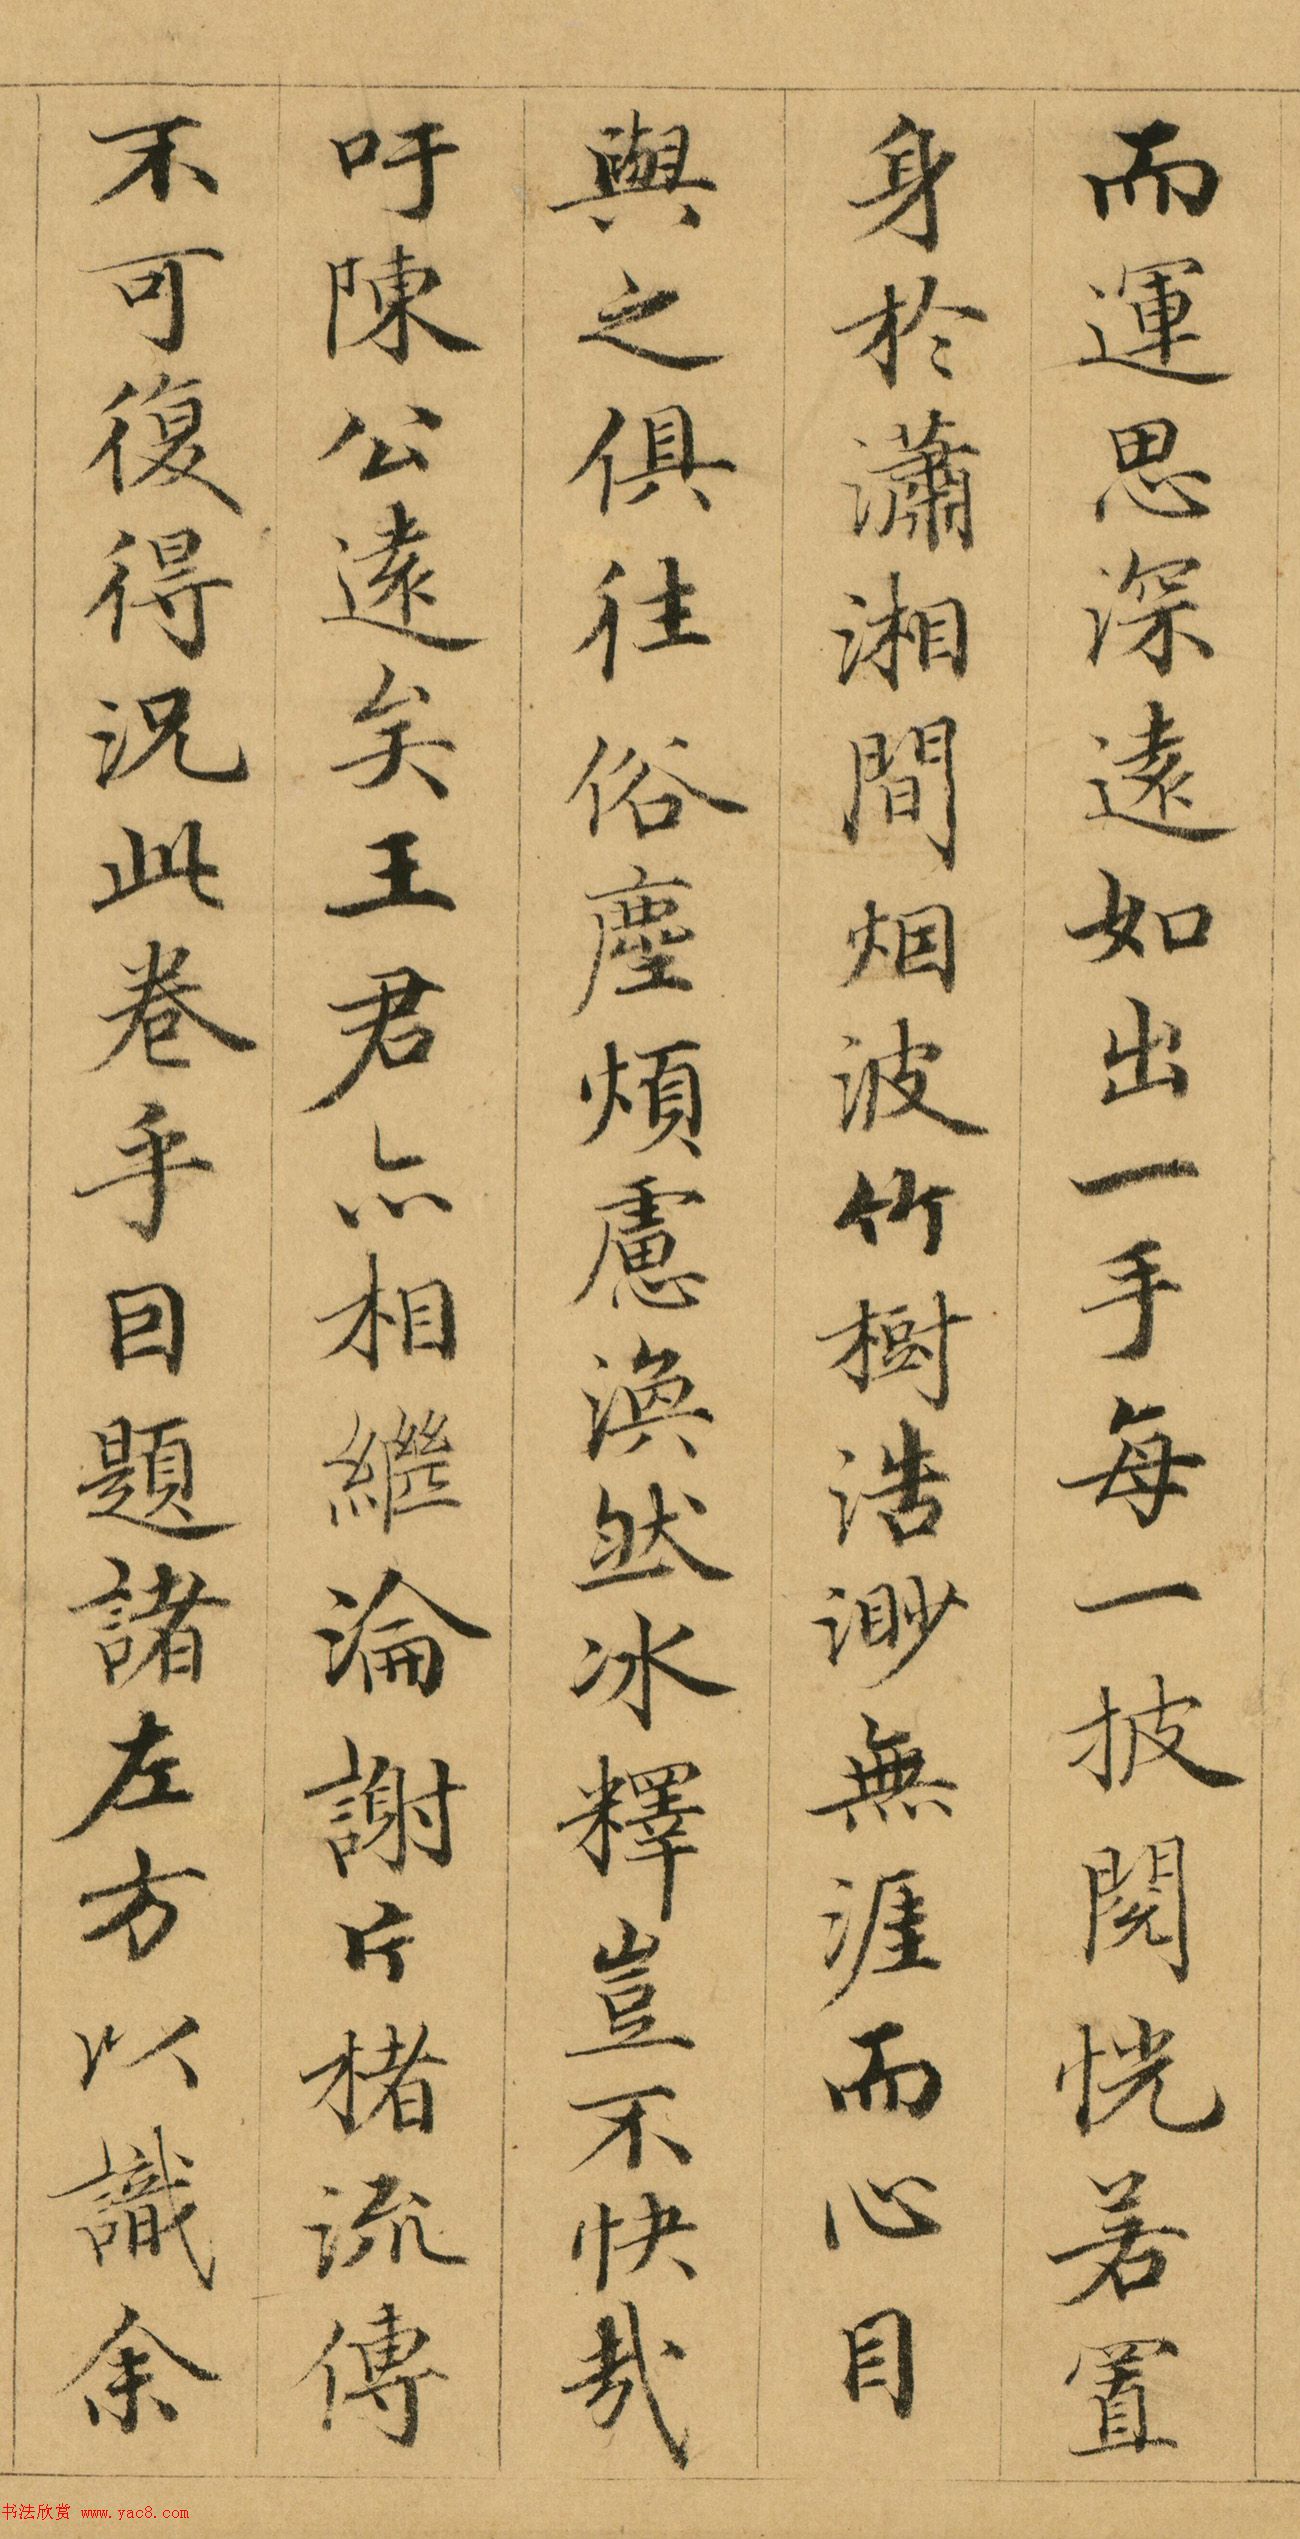 而運思深遠如出一手每一披閱恍若置
身於瀟湘間烟波竹樹浩渺無涯而心目
與之俱往俗塵煩慮渙然冰釋豈不快哉
吁陳公遠矣王君亦相繼淪謝片楮流傳
不可復得況此卷乎因題諸左方以識余
书法欣赏 www.yac8.com